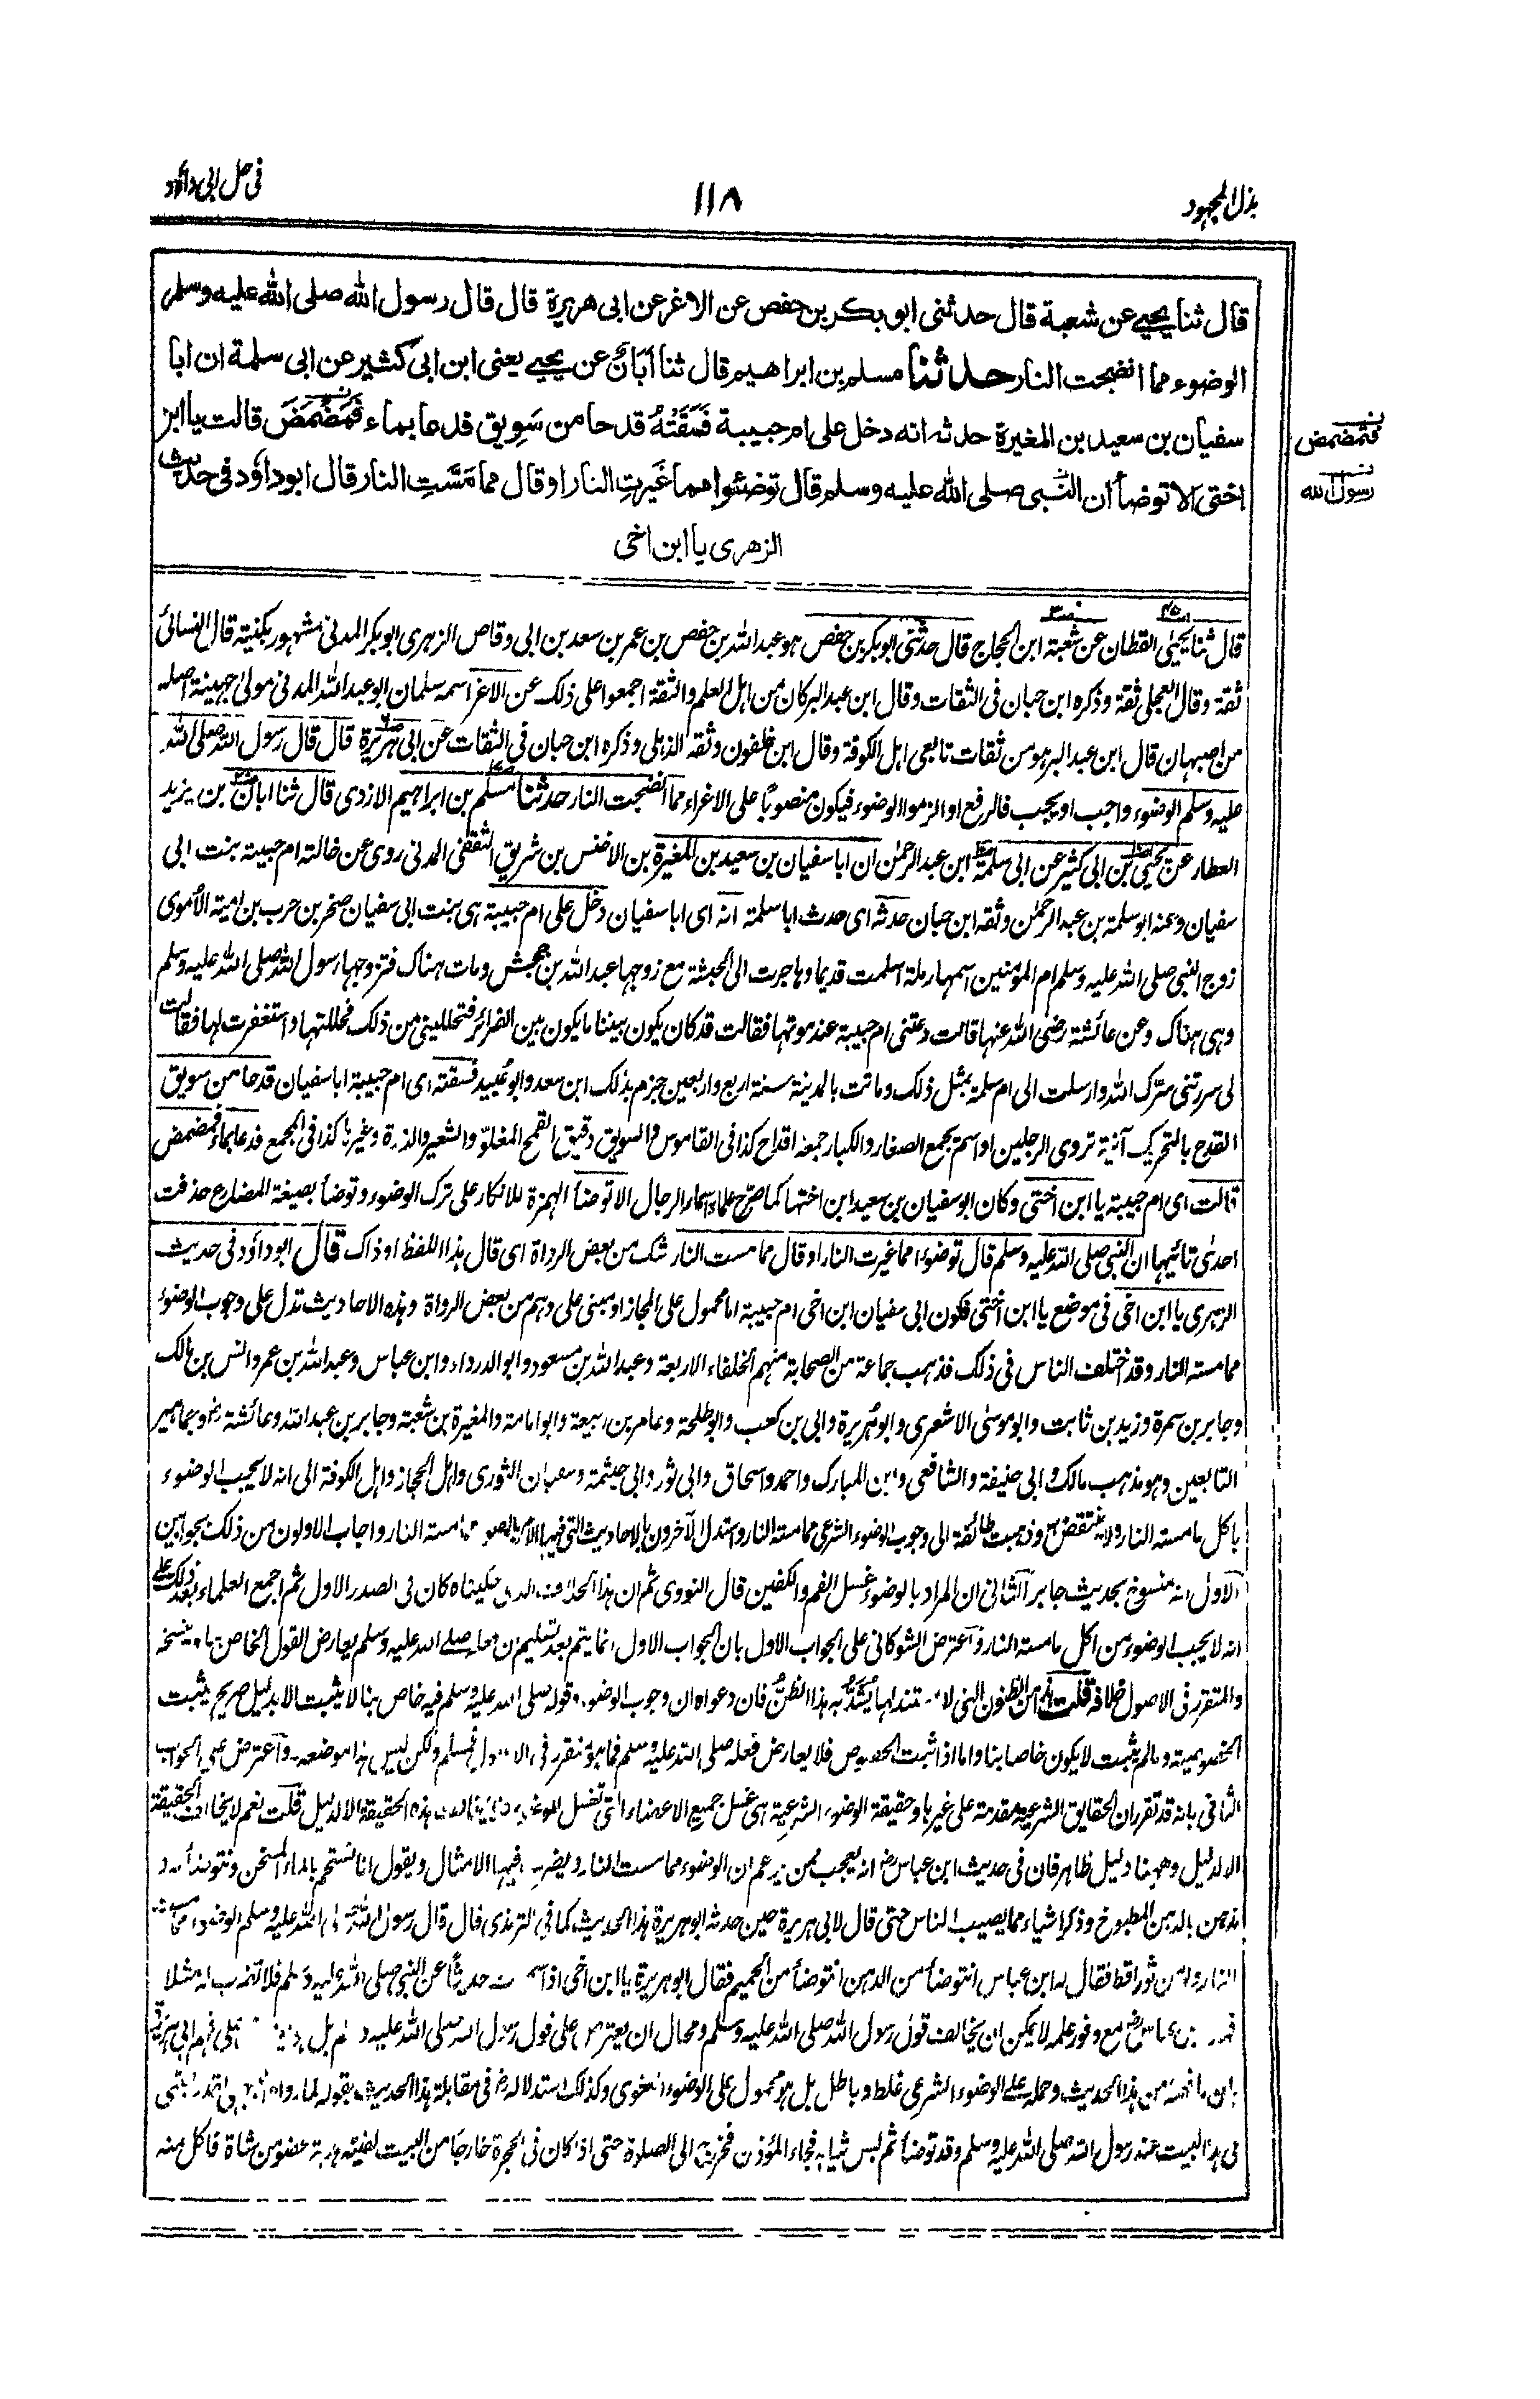 بذل المجہود
١١٨
فی حل ابی داؤد
قال ثنا یحیے عن شعبة قال حدثنی ابوبکر بن حفص عن الاغر عن ابی هریرة قال قال رسول الله صلی الله علیه وسلم
الوضوء مما انضجت النار حدثنا مسلم بن ابراهیم قال ثنا اَبَانُ عن یحیے یعنی ابن ابی کثیر عن ابی سلمة ان ابا
سفیان بن سعید بن المغیرة حدثه انه دخل علی ام حبیبة فَسَقَتْهُ قدحا من سَوِیق فدعا بماء فَمَضْمَضَ قالت یا ابن
اختی الا توضأ ان النبی صلی الله علیه وسلم قال توضئوا مما غَیَّرتِ النار او قال مما مَسَّتِ النار قال ابوداؤد فی حدیث
الزهری یا ابن اخی
فتمضمض
رسول الله
قال ثنا یحیی القطان عن شعبة ابن الحجاج قال حدثنی ابوبکر بن حفص ہو عبداللہ بن حفص بن عمر بن سعد بن ابی وقاص الزہری ابوبکر المدنی مشہور بکنیتہ قال النسائی
ثقة وقال العجلی ثقة وذکرہ ابن حبان فی الثقات وقال ابن عبدالبر کان من اہل العلم والثقة اجمعوا علی ذلک عن الاغر اسمہ سلمان ابوعبداللہ المدنی مولی جہینة اصلہ
من اصبہان قال ابن عبدالبر ہو من ثقات تابعی اہل الکوفة وقال ابن خلفون وثقہ الذہلی وذکرہ ابن حبان فی الثقات عن ابی ہریرة قال قال رسول اللہ صلی اللہ
علیہ وسلم الوضوء واجب او یجب فالرفع او الزموا الوضوء فیکون منصوبًا علی الاغراء مما انضجت النار حدثنا مسلم بن ابراہیم الازدی قال ثنا ابان بن یزید
العطار عن یحیی بن ابی کثیر عن ابی سلمة ابن عبدالرحمٰن ان ابا سفیان بن سعید بن المغیرة بن الاخنس بن شریق الثقفی المدنی روی عن خالتہ ام حبیبة بنت ابی
سفیان وعنہ ابوسلمة بن عبدالرحمٰن وثقہ ابن حبان حدثہ ای حدث ابا سلمة انہ ای ابا سفیان دخل علی ام حبیبة ہی بنت ابی سفیان صخر بن حرب بن امیة الاُموی
زوج النبی صلی اللہ علیہ وسلم ام المؤمنین اسمہا رملة اسلمت قدیما وہاجرت الی الحبشة مع زوجہا عبداللہ بن جحش ومات ہناک فتزوجہا رسول اللہ صلی اللہ علیہ وسلم
وہی ہناک وعن عائشة رضی اللہ عنہا قالت دعتنی ام حبیبة عند موتہا فقالت قد کان یکون بیننا ما یکون بین الضرائر فتحللینی من ذلک فحللتہا واستغفرت لہا فقالت
لی سررتنی سرّک اللہ وارسلت الی ام سلمة بمثل ذلک وماتت بالمدینة سنة اربع واربعین جزم بذلک ابن سعد وابوعُبید فسقتہ ای ام حبیبة ابا سفیان قدحا من سویق
القدح بالتحریک آنیة تروی الرجلین او اسم یجمع الصغار والکبار جمعہ اقداح کذا فی القاموس والسویق دقیق القمح المغلوّ والشعیر والذرة وغیرہا کذا فی المجمع فدعا بماء فمضمض
قالت ای ام حبیبة یا ابن اختی وکان ابوسفیان بن سعید ابن اختہا کما صرّح علماء اسماء الرجال الا توضأ الہمزة للانکار علی ترک الوضوء وتوضأ بصیغة المضارع حذفت
احدٰی تائیہا ان النبی صلی اللہ علیہ وسلم قال توضوءا مما غیرت النار او قال مما مست النار شک من بعض الرواة ای قال ہذا اللفظ او ذاک قال ابوداؤد فی حدیث
الزہری یا ابن اخی فی موضع یا ابن اختی فکون ابی سفیان ابن اخی ام حبیبة اما محمول علی المجاز او مبنی علی وہم من بعض الرواة وہذہ الاحادیث تدل علی وجوب الوضوء
مما مستہ النار وقد اختلف الناس فی ذلک فذہب جماعة من الصحابة منہم الخلفاء الاربعة وعبداللہ بن مسعود وابوالدرداء وابن عباس وعبداللہ بن عمر وانس بن مالک
وجابر بن سمرة وزید بن ثابت وابوموسٰی الاشعری وابوہُریرة وابی بن کعب وابوطلحة وعامر بن ربیعة وابوامامة والمغیرة بن شعبة وجابر بن عبداللہ وعائشة رض وجماہیر
التابعین وہو مذہب مالک وابی حنیفة والشافعی وابن المبارک واحمد واسحاق وابی ثور وابی خیثمة وسفیان الثوری واہل الحجاز واہل الکوفة الی انہ لا یجب الوضوء
باکل ما مستہ النار ولا ینتقض بہ وذہبت طائفة الی وجوب الوضوء الشرعی مما مستہ النار واستدل الآخرون بالاحادیث التی فیہا الامر بالوضوء مما مستہ النار واجاب الاولون من ذلک بجوابین
الاول انہ منسوخ بحدیث جابر الثانی ان المراد بالوضوء غسل الفم والکفین قال النووی ثم ان ہذا الخلاف الذی حکیناہ کان فی الصدر الاول ثم اجمع العلماء بعد ذلک علی
انہ لا یجب الوضوء من اکل ما مستہ النار واعترض الشوکانی علی الجواب الاول بان الجواب الاول انما یتم بعد تسلیم ان فعلہ صلے اللہ علیہ وسلم یعارض القول الخاص بنا وینسخہ
والمتقرر فی الاصول خلافہ قلت ہذا من الظنون التی لا مستند لہا یُشَدُّ بہ ہذا الظنُّ فان دعواہ ان وجوب الوضوء قولہ صلی اللہ علیہ وسلم فیہ خاص بنا لا یثبت الا بدلیل صریح یثبت
الخصوصیة وما لم یثبت لا یکون خاصا بنا واما اذا ثبت الخصوص فلا یعارض فعلہ صلی اللہ علیہ وسلم فما ہو متقرر فی الاصول فمسلم ولکن لیس ہذا موضعہ واعترض علی الجواب
الثانی بانہ قد تقرر ان الحقایق الشرعیة مقدمة علی غیرہا وحقیقة الوضوء الشرعیة ہی غسل جمیع الاعضاء التی تغسل للوضوء فلا یخالف ہذہ الحقیقة الا لدلیل قلت نعم لا یخالف الحقیقة
الا لدلیل وہہنا دلیل ظاہر فان فی حدیث ابن عباس رض انہ یعجب ممن یزعم ان الوضوء مما مست النار ویضرب فیہا الامثال ویقول انا نستحم بالماء المسخن ونتوضأ بہ و
ندہن بالدہن المطبوخ وذکر اشیاء مما یصیب الناس حتی قال لابی ہریرة حین حدثہ ابوہریرة ہذا الحدیث کما فی الترمذی قال قال رسول اللہ صلی اللہ علیہ وسلم الوضوء مما مست
النار ولو من ثور اقط فقال لہ ابن عباس انتوضأ من الدہن انتوضأ من الحمیم فقال ابوہریرة یا ابن اخی اذا سمعت حدیثًا عن النبی صلی اللہ علیہ وسلم فلا تضرب لہ مثلا
بن عباس رض مع وفور علمہ لا یمکن ان یخالف قول رسول اللہ صلی اللہ علیہ وسلم ومحال ان یعترض علی قول رسول اللہ صلی اللہ علیہ وسلم بل علی فہم ابی ہریرة
بان ما فہمہ من ہذا الحدیث وحملہ علے الوضوء الشرعی غلط وباطل بل ہو محمول علی الوضوء اللغوی وکذلک استدلالہ رض فی مقابلة ہذا الحدیث بقولہ لما رواہ
فی ہذا البیت عند رسول اللہ صلی اللہ علیہ وسلم وقد توضأ ثم لبس ثیابہ فجاء المؤذن فخرج الی الصلوة حتی اذا کان فی الحجرة خارجا من البیت لقیتہ ہدیة عضو من شاة فاکل منہ